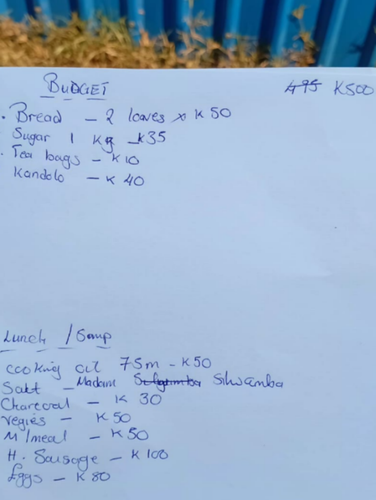 BUDGET 495 K500
• Bread - 2 loaves x K50
Sugar 1 Kg - K35
• Tea bags - K10
Kandolo - K 40
Lunch / Samp
cooking oil 75m - K50
Salt - Madam Silwamba
Charcoal - K 30
vegies - K50
M/meal - K50
H. Sausage - K100
Eggs - K80